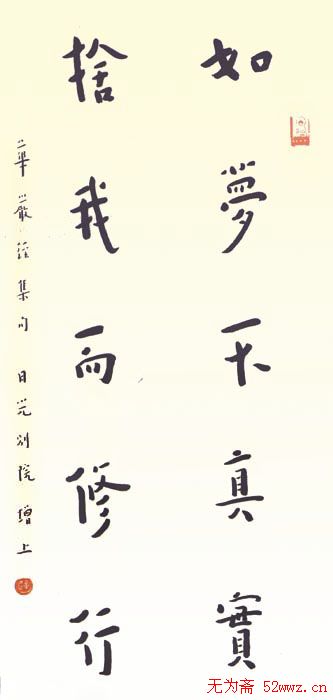 如夢不真實
捨我而修行
華嚴經集句 日光別院 增上
无为斋 52wwz.cn